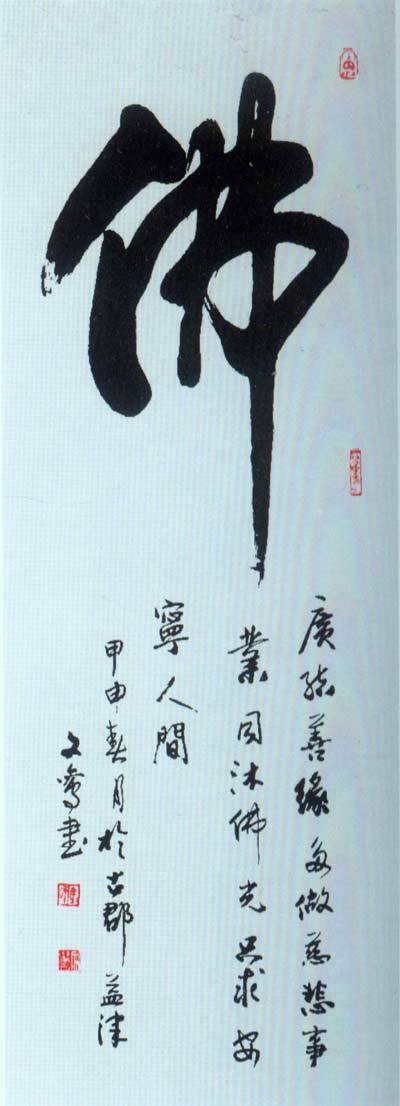 佛
廣結善緣多做慈悲事
業同沐佛光只求安
寧人間
甲申春月於古郡益津
文鸞書